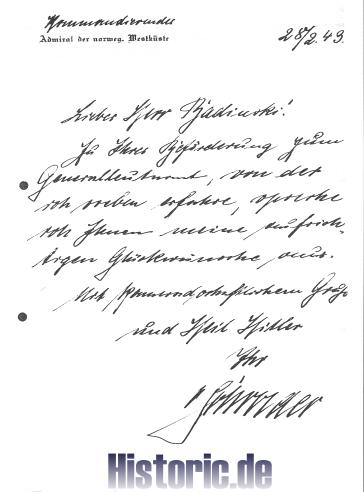 Kommandierender
Admiral der norweg. Westküste
28/2.43.
Lieber Herr Badinski!
Zu Ihrer Beförderung zum
Generalleutnant, von der
ich soeben erfahre, spreche
ich Ihnen meine aufrich-
tigen Glückwünsche aus.
Mit kameradschaftlichem Gruß
und Heil Hitler
Ihr
Schrader
Historic.de